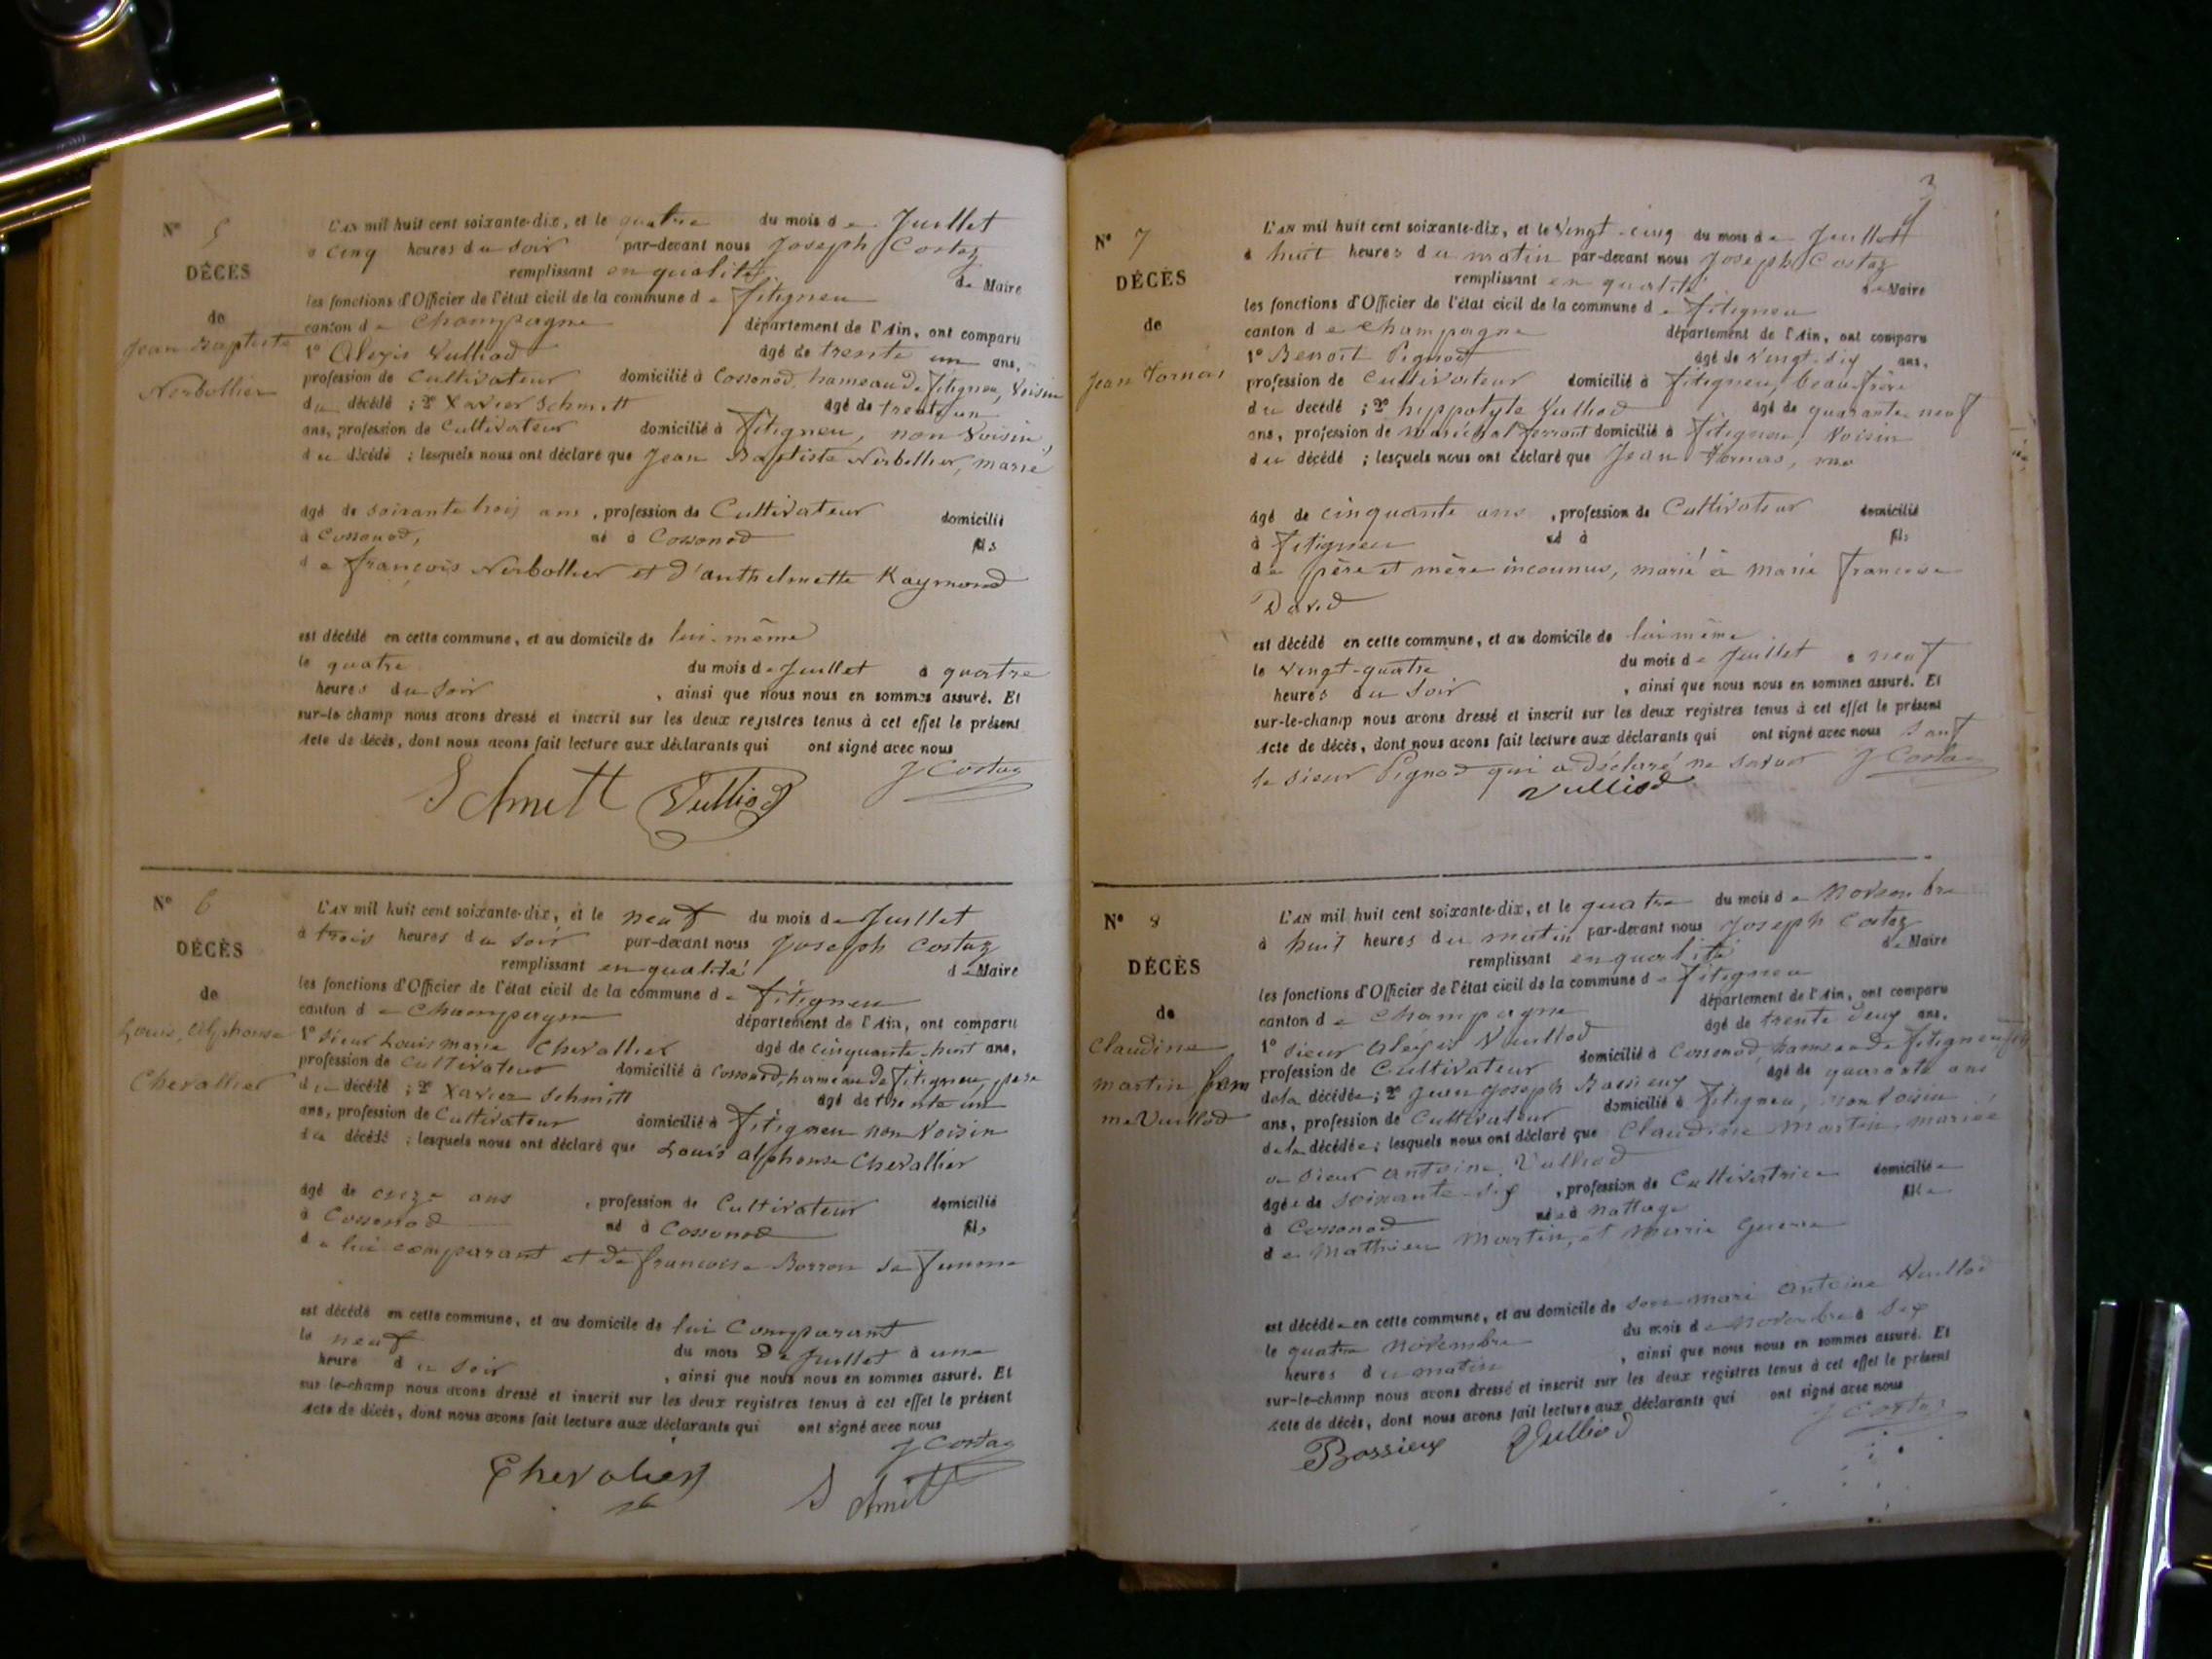 N° 5
DÉCÈS
de
Jean Baptiste
Nerbollier
L'AN mil huit cent soixante-dix, et le quatre du mois de Juillet
à cinq heures du soir par-devant nous Joseph Costaz
remplissant en qualité de Maire
les fonctions d'Officier de l'état civil de la commune de fitigneu
canton de Champagne département de l'Ain, ont comparu
1° Alexis Vulliod âgé de trente un ans,
profession de Cultivateur domicilié à Cossonod, hameau de fitigneu, Voisin
du décédé ; 2° Xavier Schmitt âgé de trente un
ans, profession de Cultivateur domicilié à fitigneu, non Voisin
du décédé ; lesquels nous ont déclaré que Jean Baptiste Nerbollier, marié
âgé de soixante trois ans, profession de Cultivateur domicilié
à Cossonod, né à Cossonod fils
de françois Nerbollier et d'anthelmette Raymond
est décédé en cette commune, et au domicile de lui-même
le quatre du mois de Juillet à quatre
heures du soir, ainsi que nous nous en sommes assuré. Et
sur-le-champ nous avons dressé et inscrit sur les deux registres tenus à cet effet le présent
Acte de décès, dont nous avons fait lecture aux déclarants qui ont signé avec nous
J Costaz
Schmitt Vulliod
N° 6
DÉCÈS
de
Louis, Alphonse
Chevallier
L'AN mil huit cent soixante-dix, et le neuf du mois de Juillet
à trois heures du soir par-devant nous Joseph Costaz
remplissant en qualité de Maire
les fonctions d'Officier de l'état civil de la commune de fitigneu
canton de Champagne département de l'Ain, ont comparu
1° sieur Louis marie Chevallier âgé de cinquante-huit ans,
profession de Cultivateur domicilié à Cossonod, hameau de fitigneu, père
du décédé ; 2° Xavier Schmitt âgé de trente un
ans, profession de Cultivateur domicilié à fitigneu non Voisin
du décédé ; lesquels nous ont déclaré que Louis alphonse Chevallier
âgé de onze ans, profession de Cultivateur domicilié
à Cossonod né à Cossonod fils
de lui comparant et de francoise Borron sa femme
est décédé en cette commune, et au domicile de lui Comparant
le neuf du mois De Juillet à une
heure du soir, ainsi que nous nous en sommes assuré. Et
sur-le-champ nous avons dressé et inscrit sur les deux registres tenus à cet effet le présent
Acte de décès, dont nous avons fait lecture aux déclarants qui ont signé avec nous
J Costaz
Chevalier Schmitt
3
N° 7
DÉCÈS
de
Jean Fornas
L'AN mil huit cent soixante-dix, et le Vingt-cinq du mois de Juillet
à huit heures du matin par-devant nous Joseph Costaz
remplissant en qualité de Maire
les fonctions d'Officier de l'état civil de la commune de fitigneu
canton de Champagne département de l'Ain, ont comparu
1° Benoit Pignod âgé de Vingt-six ans,
profession de Cultivateur domicilié à fitigneu, beau frère
du décédé ; 2° hyppolyte Vulliod âgé de quarante neuf
ans, profession de maréchal ferrant domicilié à fitigneu, Voisin
du décédé ; lesquels nous ont déclaré que Jean Fornas,
âgé de cinquante ans, profession de Cultivateur domicilié
à fitigneu né à fils
de père et mère inconnus, marié à marie francoise
David
est décédé en cette commune, et au domicile de lui même
le Vingt-quatre du mois de Juillet à neuf
heures du soir, ainsi que nous nous en sommes assuré. Et
sur-le-champ nous avons dressé et inscrit sur les deux registres tenus à cet effet le présent
Acte de décès, dont nous avons fait lecture aux déclarants qui ont signé avec nous sauf
le sieur Pignod qui a déclaré ne savoir J Costaz
Vulliod
N° 8
DÉCÈS
de
Claudine
martin fem
me Vuillod
L'AN mil huit cent soixante-dix, et le quatre du mois de Novembre
à huit heures du matin par-devant nous Joseph Costaz
remplissant en qualité de Maire
les fonctions d'Officier de l'état civil de la commune de fitigneu
canton de Champagne département de l'Ain, ont comparu
1° sieur Alexis Vuillod âgé de trente deux ans,
profession de Cultivateur domicilié à Cossonod, hameau de fitigneu, fils
de la décédée ; 2° Jean Joseph Bassieux âgé de quarante ans
ans, profession de Cultivateur domicilié à fitigneu, non Voisin
de la décédée ; lesquels nous ont déclaré que Claudine Martin, mariée
a sieur antoine Vulliod
âgée de soixante-six, profession de Cultivatrice domiciliée
à Cossonod née à Nattage fille
de Mathieu Martin, et Marie Guerre
est décédée en cette commune, et au domicile de son mari Antoine Vuillod
le quatre Novembre du mois de Novembre à Six
heures du matin, ainsi que nous nous en sommes assuré. Et
sur-le-champ nous avons dressé et inscrit sur les deux registres tenus à cet effet le présent
Acte de décès, dont nous avons fait lecture aux déclarants qui ont signé avec nous
J Costaz
Bossieux Vulliod